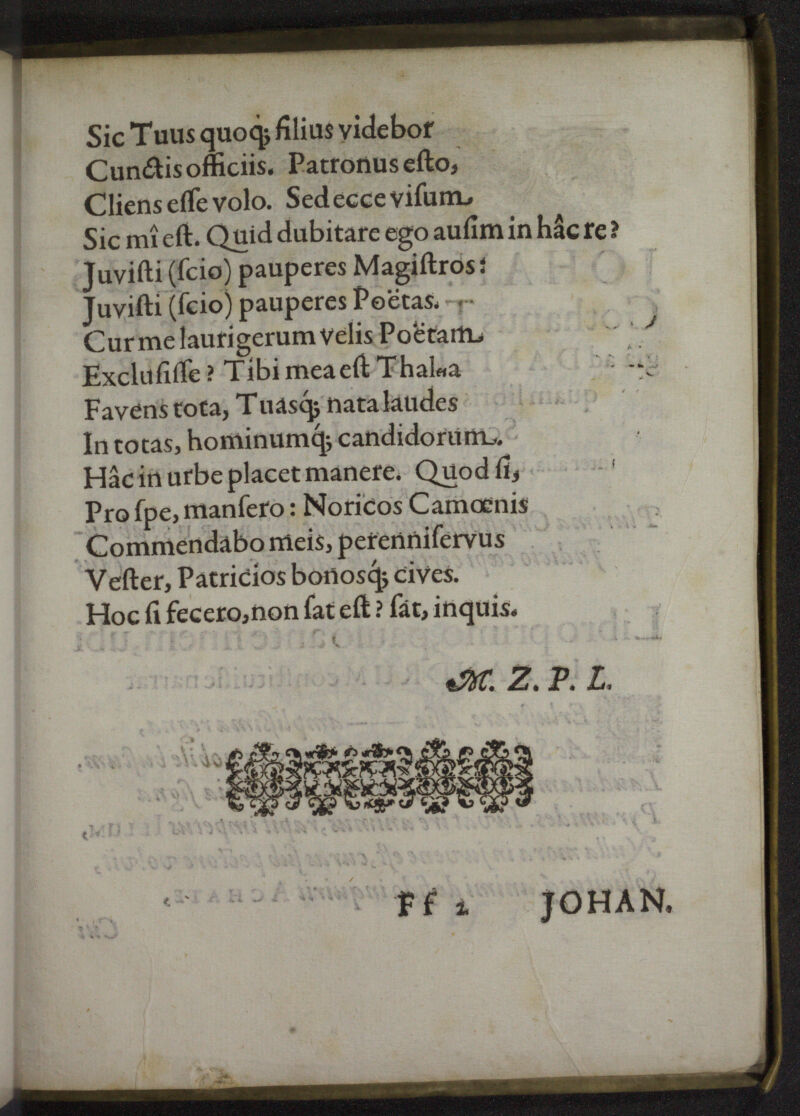 Sic Tuus quoq; filius videbor
Cunctis officiis. Patronus eſto,
Cliens eſſe volo. Sed ecce viſum
Sic mî eſt. Quid dubitare ego auſim in hâc re?
Juviſti (ſcio) pauperes Magiſtros:
Juviſti (ſcio) pauperes Poëtas.
Cur me laurigerum velis Poëtam
Excluſiſſe? Tibi mea eſt Thalia
Favens tota, Tuásq; nata laudes
In totas, hominumq́; candidorum.
Hâc in urbe placet manere. Quod ſi,
Pro ſpe, manſero: Noricos Camœnis
Commendabo meis, perenniſervus
Veſter, Patricios bonosq́; cives.
Hoc ſi fecero, non ſat eſt? ſat, inquis.
M. Z. P. L.
Ff 2 JOHAN.